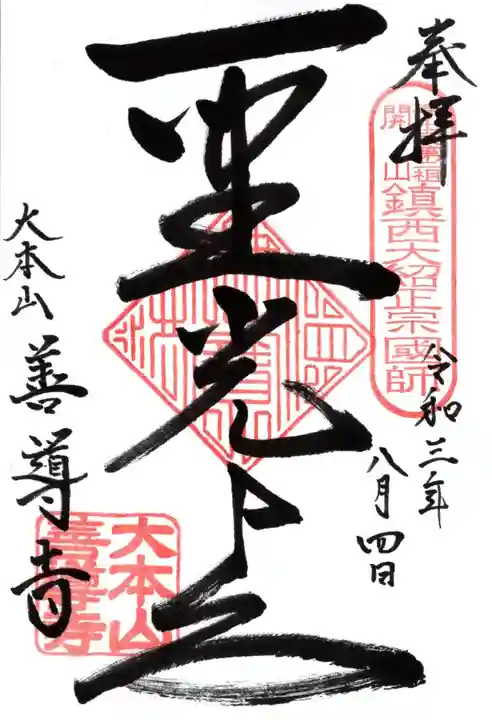 奉拝
開山鎮西大紹正宗國師
令和三年
八月四日
聖光上人
大本山 善導寺
大本山
善導寺